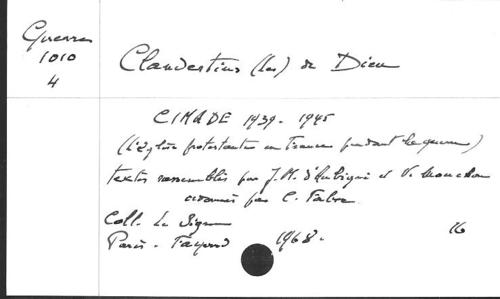 Guerres
1010
4
Clandestins (les) de Dieu
CIMADE 1939-1945
(L'Eglise protestante en France pendant la guerre)
textes rassemblés par J.M. d'Aubigné et V. Mouchon
ordonnés par C. Fabre
Coll. Le Signe
Paris - Fayard 1968. 16